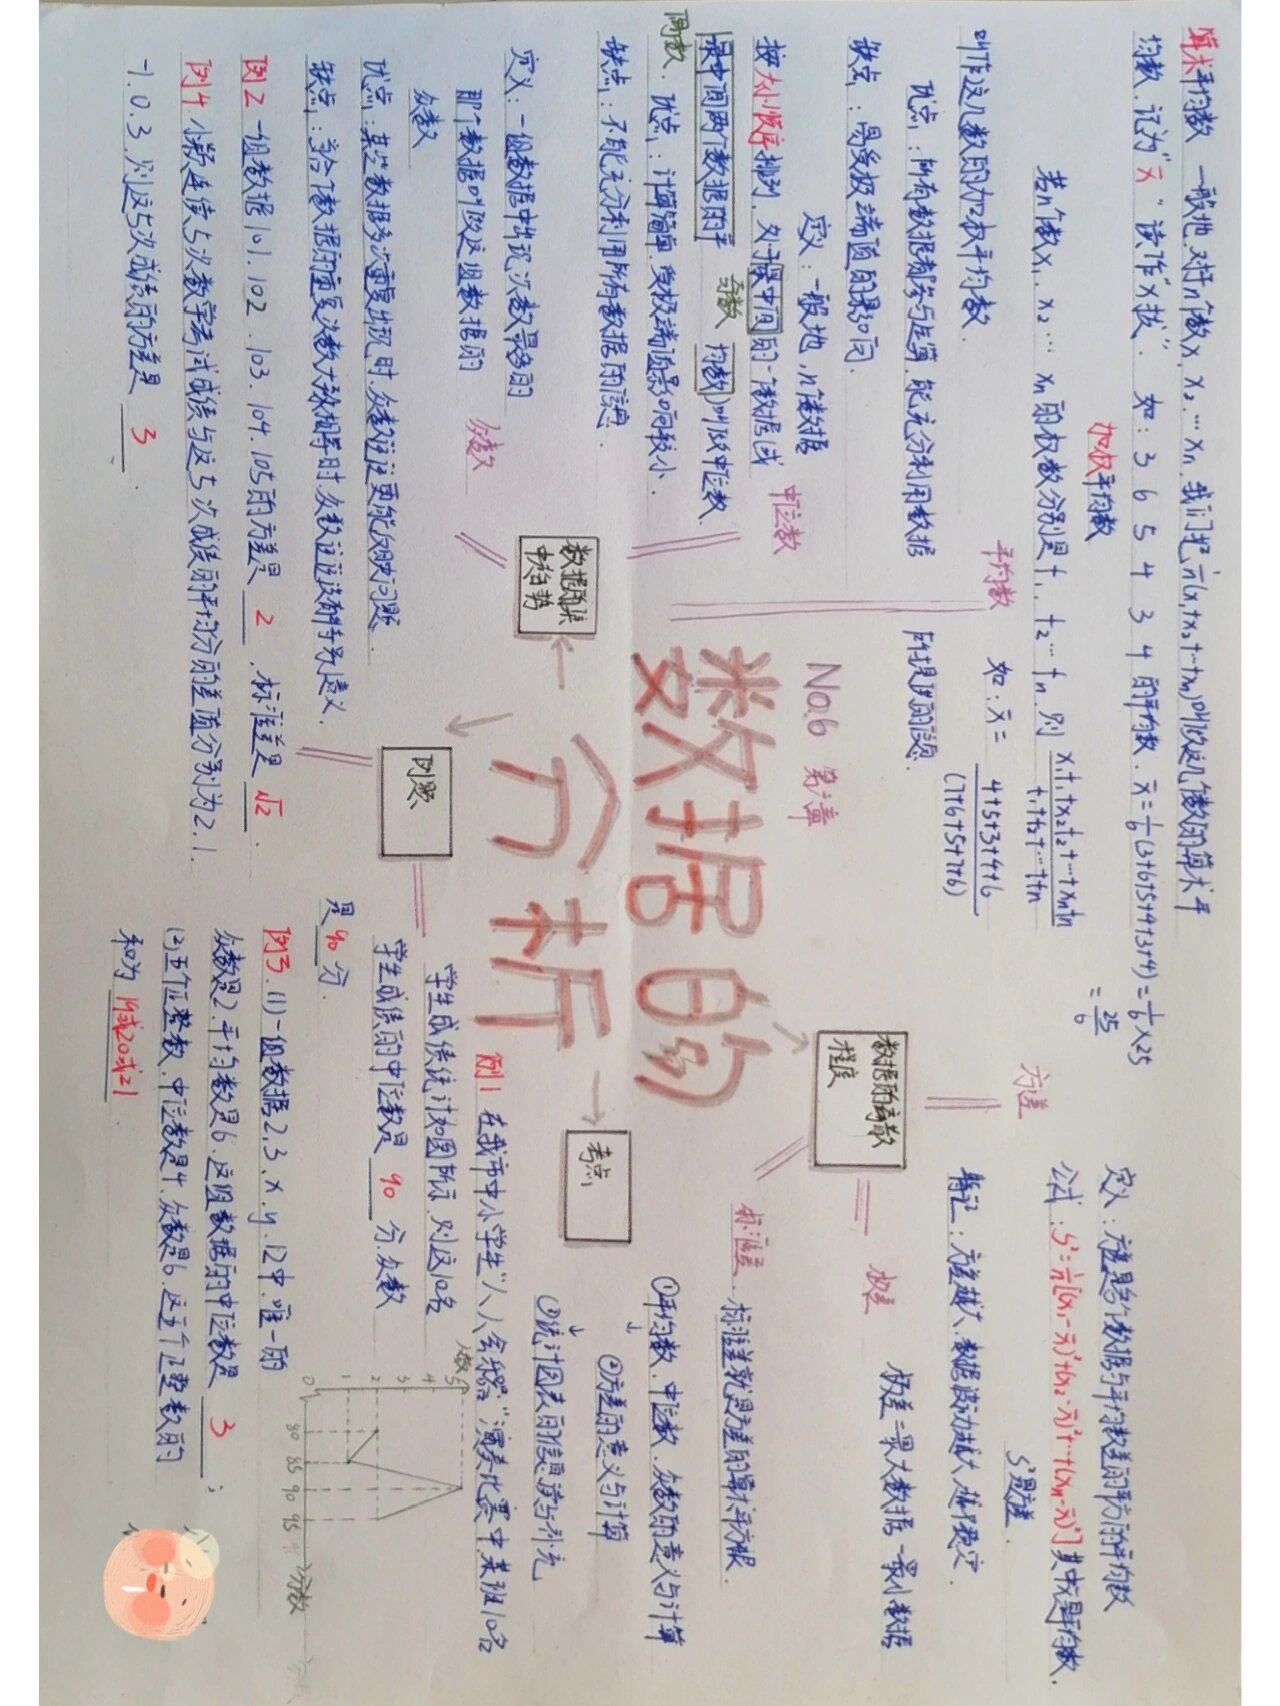 算术平均数 一般地.对于n个数x₁ x₂…xn.我们把1/n(x₁+x₂+…+xn)叫做这几个数的算术平
均数.记为"x̄" 读作"x拔". 如: 3 6 5 4 3 4 的平均数. x̄=1/6(3+6+5+4+3+4)=1/6×25
=25/6
加权平均数
若n个数x₁、x₂…xn的权数分别是f₁、f₂…fn.则 x₁f₁+x₂f₂+…+xnfn/f₁+f₂+…+fn
叫作这几数的加权平均数.
如: x̄= 4+5+3+4+6/(7+6+5+7+6)
平均数
优点: 所有数据都参与运算.能充分利用数据
所提供的信息.
缺点: 易受极端值的影响.
中位数
定义:一般地,n个数据
按大小顺序排列.处于最中间的一个数据(或
最中间两个数据的平均数)叫做中位数.
奇数
偶数
优点:计算简单.受极端值影响较小.
缺点:不能充分利用所有数据的信息.
众数
定义:一组数据中出现次数最多的
那个数据叫做这组数据的
众数
优点:某些数据多次重复出现时.众数往往更能反映问题.
缺点:当各个数据的重复次数大致相等时.众数往往没有特别意义.
数据的集中趋势
No.6 第六章
数据的
分析
例题
例2 一组数据101.102.103.104.105的方差是 2 .标准差是 √2 .
例4.小颖连续5次数学考试成绩与这5次成绩的平均分的差值分别为2.1.
-1.0.3.则这5次成绩的方差是 3 .
数据的离散
程度
方差
定义:方差是各个数据与平均数差的平方的平均数
公式:S²=1/n[(x₁-x̄)²+(x₂-x̄)²+…+(xn-x̄)²]其中x̄是平均数.
S²是方差.
特证:方差越大.数据波动越大.越不稳定.
极差
极差=最大数据-最小数据
标准差.
标准差就是方差的算术平方根.
考点
①平均数、中位数、众数的意义与计算
↓
②方差的意义与计算
↓
③统计图表的信息读与补充
例1 在我市中小学生"人人会乐器"演奏比赛中.某班10名
学生成绩统计如图所示.则这10名
学生成绩的中位数是 90 分.众数
是 90 分.
人数
5
4
3
2
1
0
80 85 90 95
分数
例3.(1)一组数据2.3.x.y.12中.唯一的
众数是2.平均数是6.这组数据的中位数是 3 ;
(2)五个正整数.中位数是4.众数是6.这五个正整数的
和为 19或20或21